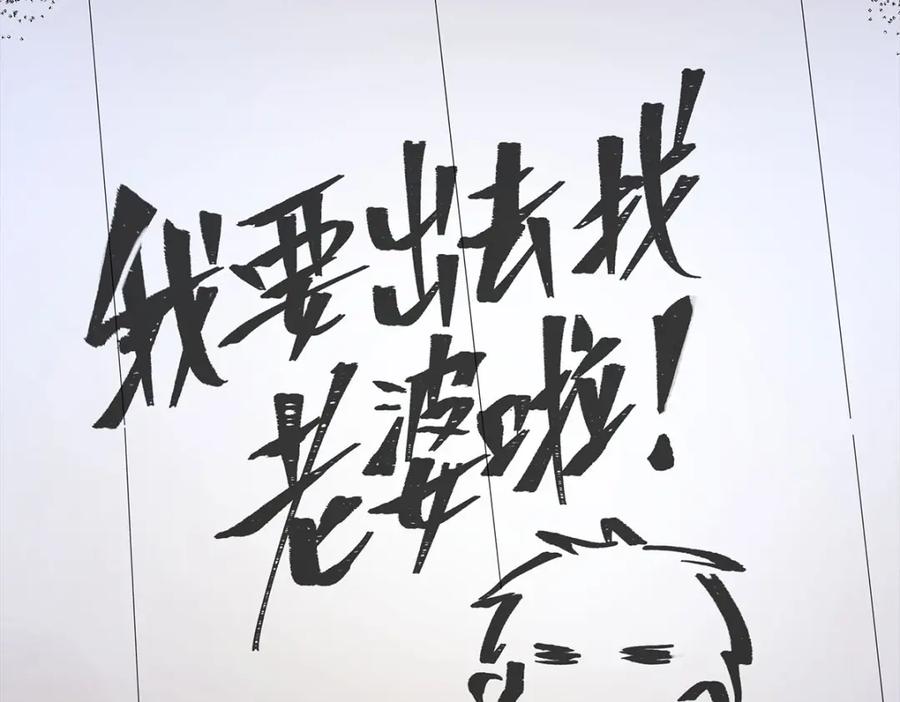 我要出去找
老婆啦！